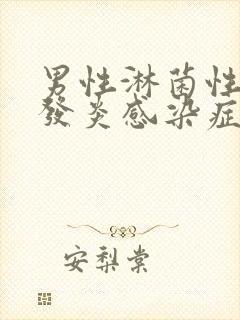 男性淋菌性
發炎感染症
安梨棠